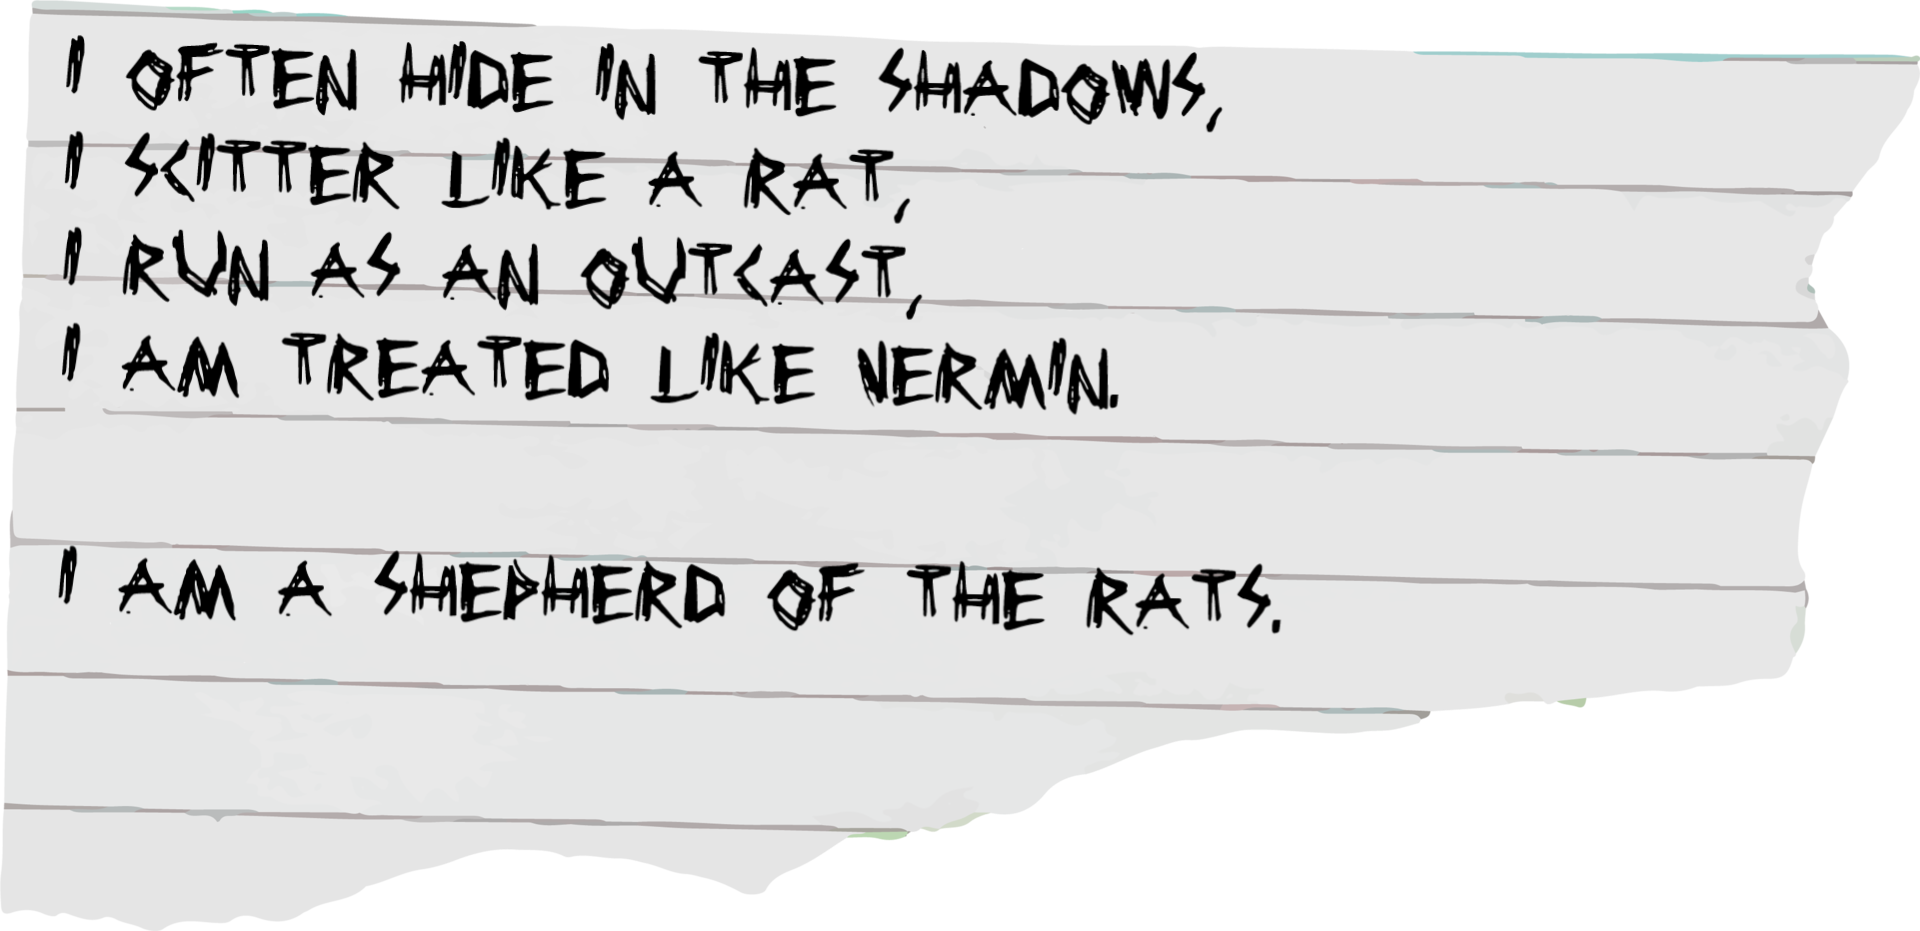 I OFTEN HIDE IN THE SHADOWS,
I SCITTER LIKE A RAT,
I RUN AS AN OUTCAST,
I AM TREATED LIKE VERMIN.
I AM A SHEPHERD OF THE RATS.